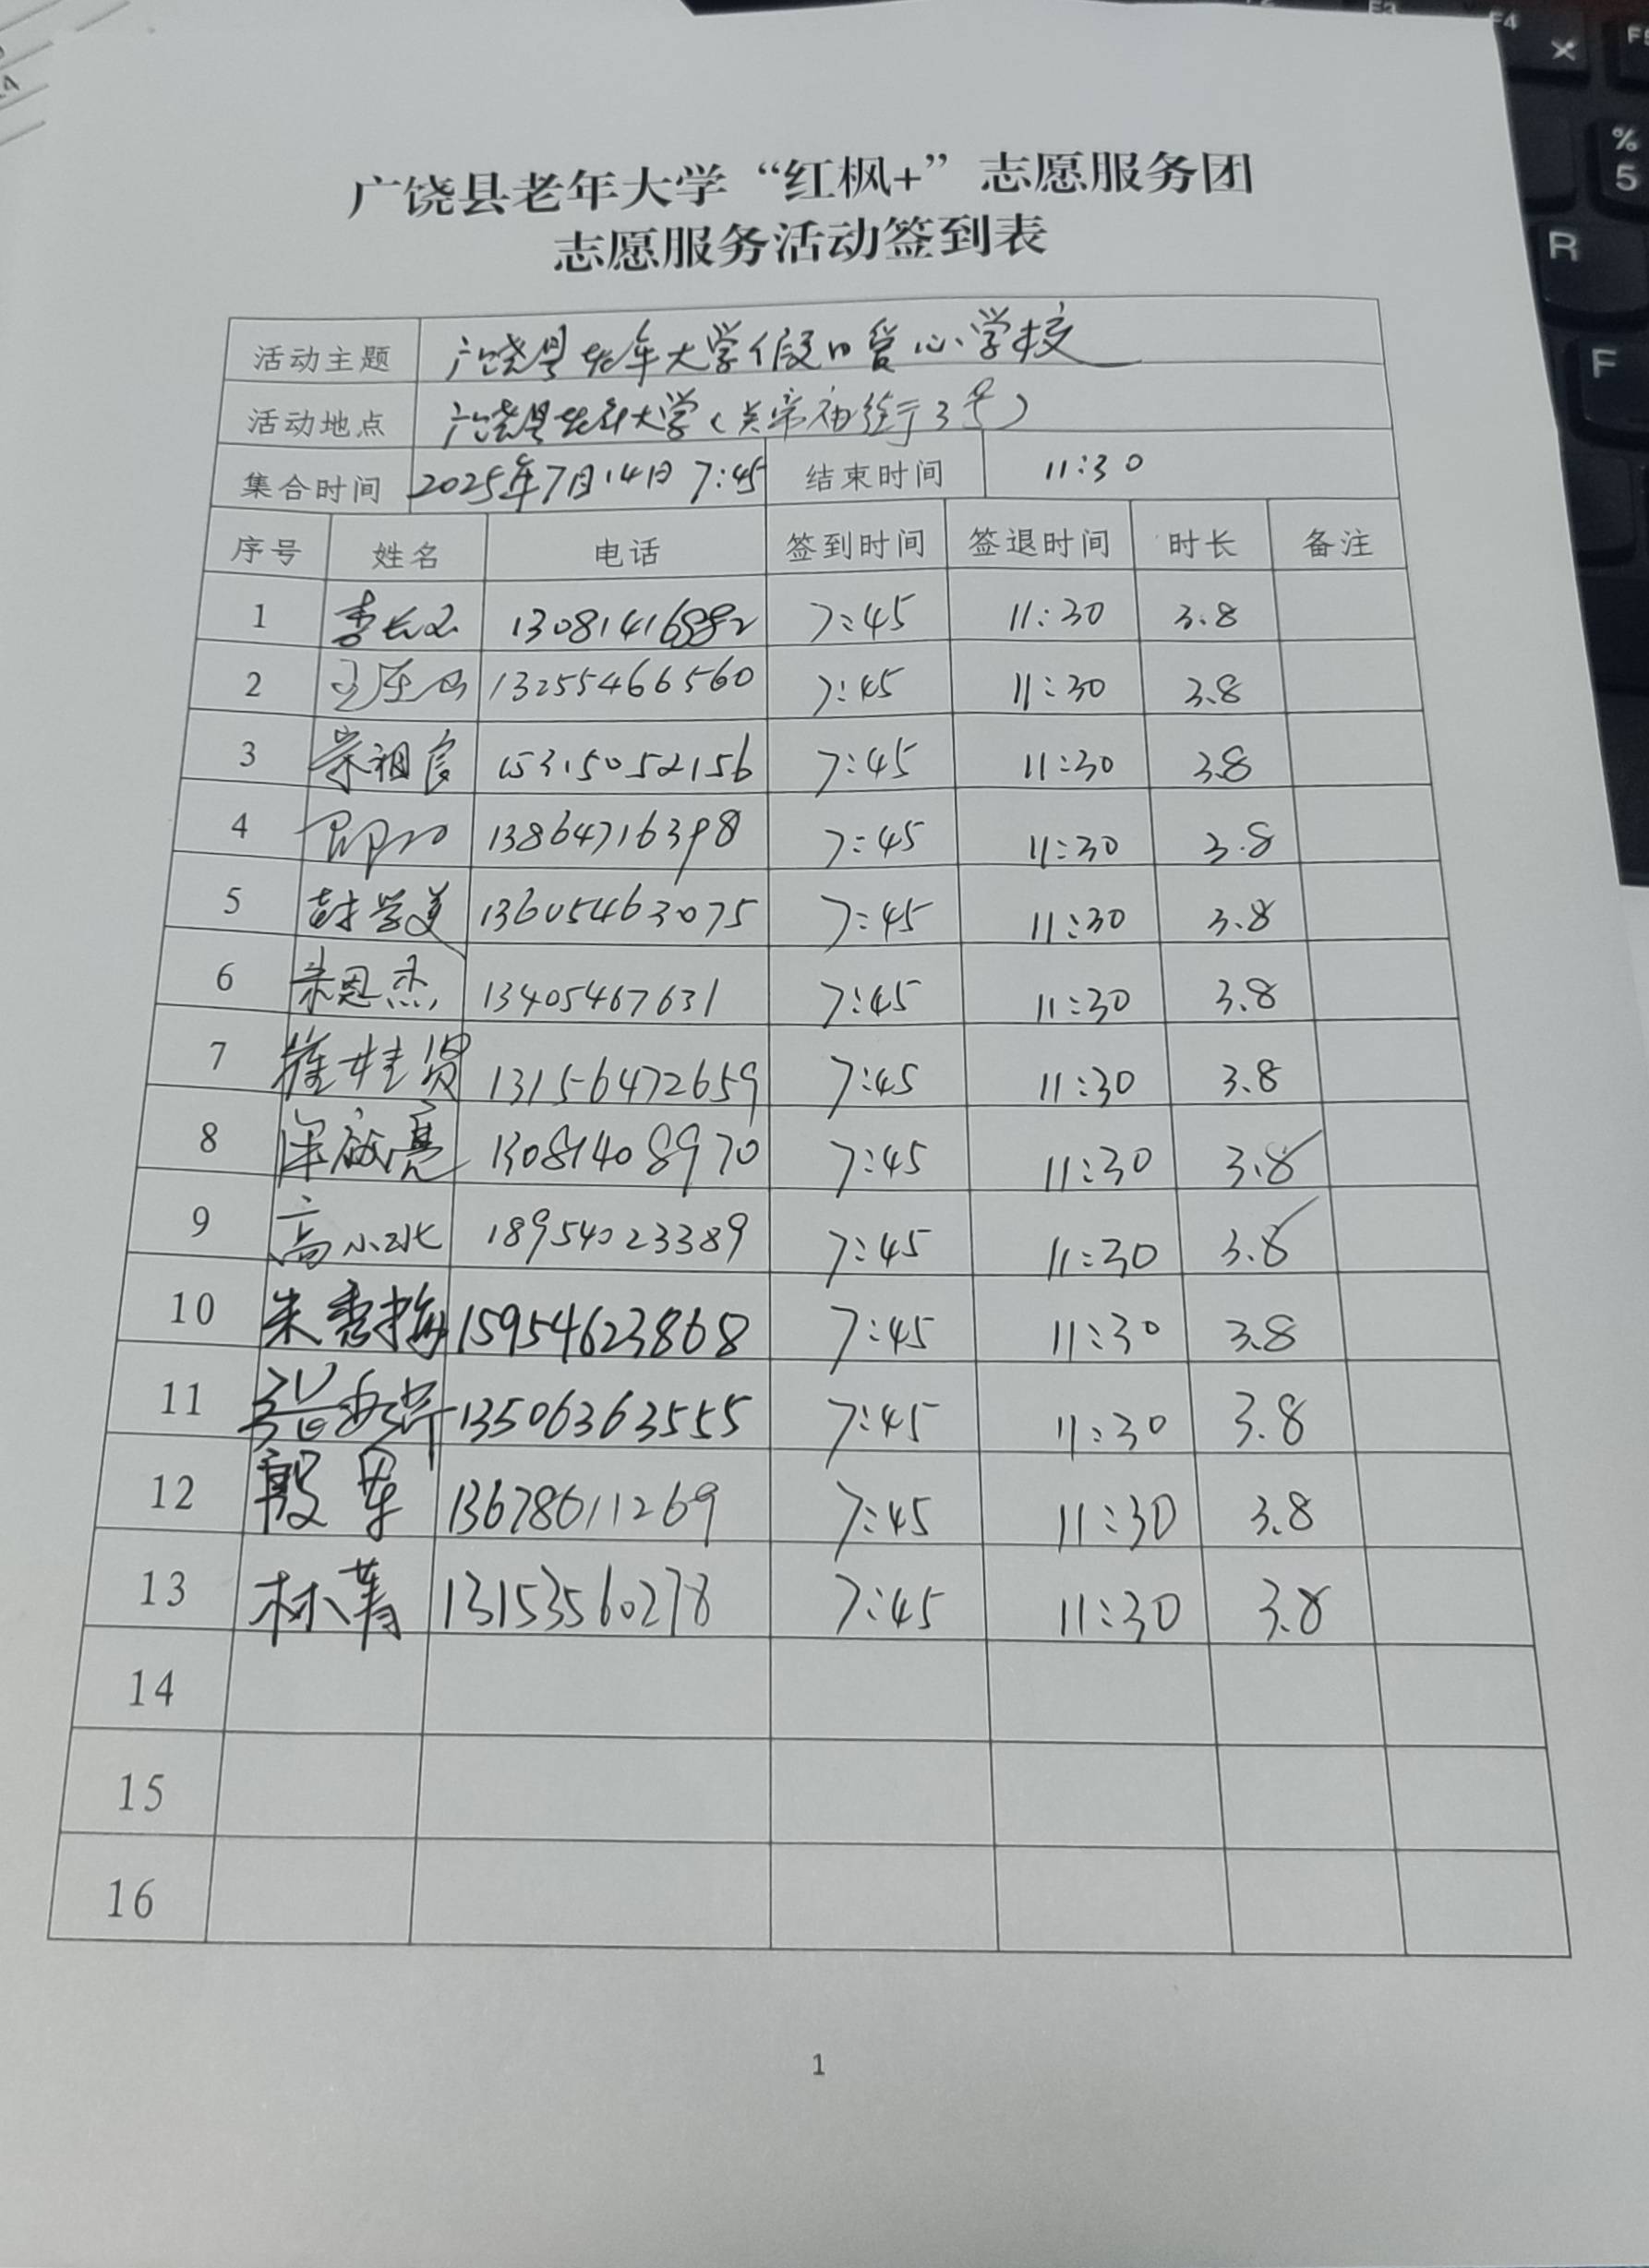 广饶县老年大学“红枫+”志愿服务团
志愿服务活动签到表
活动主题 广饶县老年大学假日爱心学校
活动地点 广饶县老年大学(关帝庙街3号)
集合时间 2025年7月14日 7:45 结束时间 11:30
序号 姓名 电话 签到时间 签退时间 时长 备注
1 7:45 11:30 3.8
2 13255466560 7:45 11:30 3.8
3 15315052156 7:45 11:30 3.8
4 13864716398 7:45 11:30 3.8
5 13605463075 7:45 11:30 3.8
6 宋恩杰 13405467631 7:45 11:30 3.8
7 崔桂贤 13156472659 7:45 11:30 3.8
8 13081408970 7:45 11:30 3.8
9 高小冰 18954023389 7:45 11:30 3.8
10 朱秀梅 15954623868 7:45 11:30 3.8
11 13506363555 7:45 11:30 3.8
12 殷军 13678611269 7:45 11:30 3.8
13 林菁 13153560278 7:45 11:30 3.8
14
15
16
1